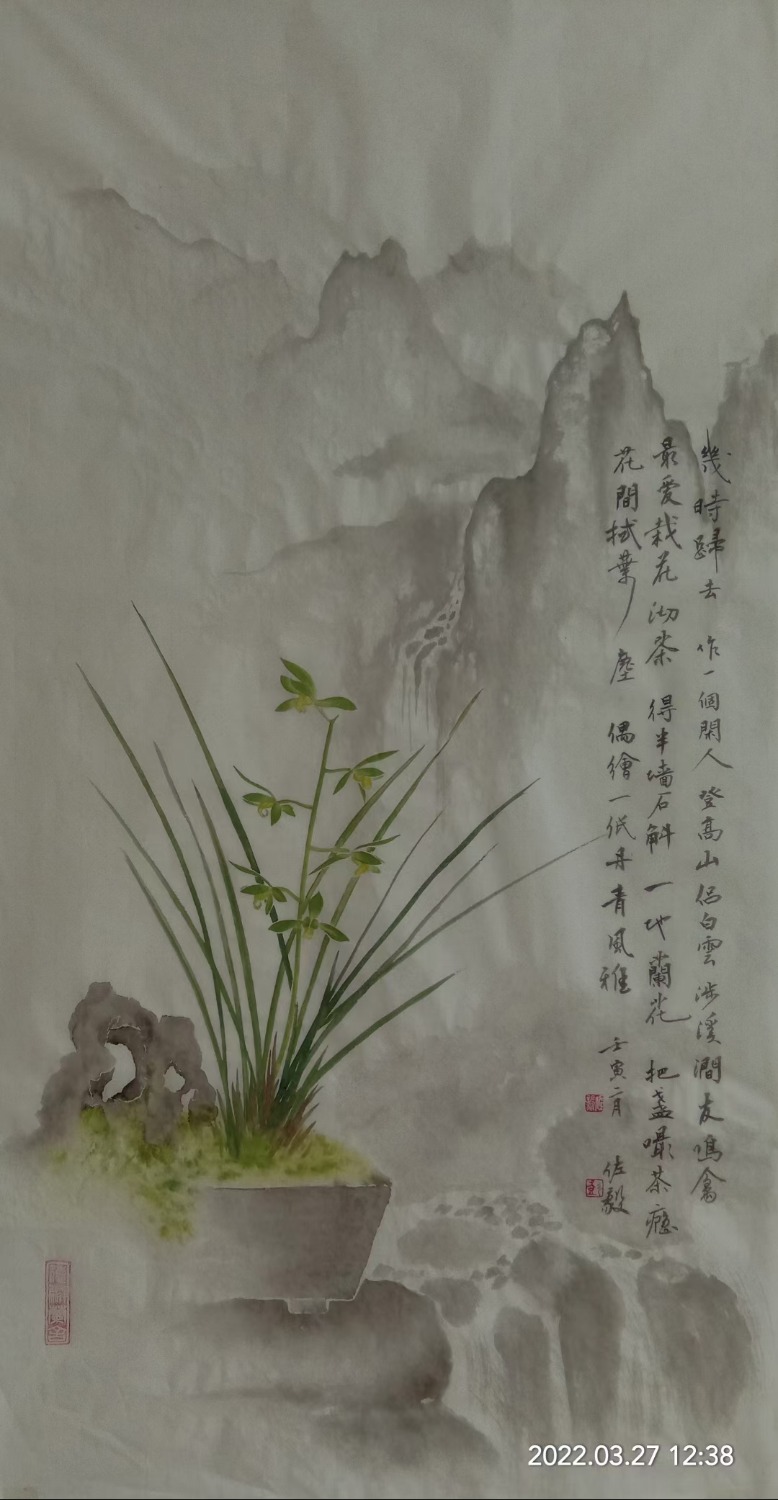 幾時歸去 作一個閑人 登高山侣白雲 涉溪澗友鳴禽
最爱栽花沏茶 得半墙石斛 一地蘭花 把盏嘬茶癮
花間拭葉塵 偶繪一纸丹青風雅 壬寅二月 佐毅
2022.03.27 12:38